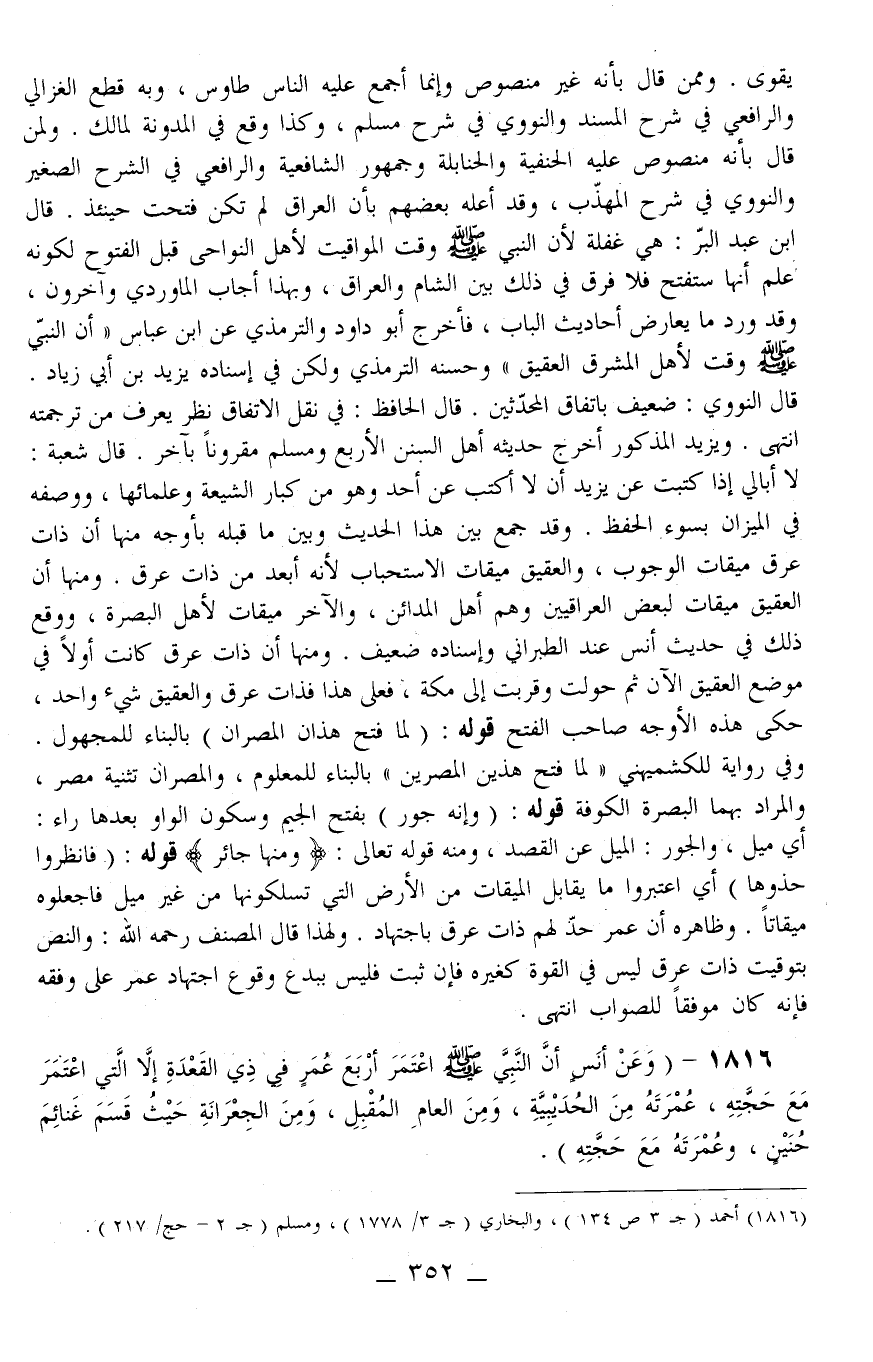 يقوى . وممن قال بأنه غير منصوص وإنما أجمع عليه الناس طاوس ، وبه قطع الغزالي
والرافعي في شرح المسند والنووي في شرح مسلم ، وكذا وقع في المدونة لمالك . ولمن
قال بأنه منصوص عليه الحنفية والحنابلة وجمهور الشافعية والرافعي في الشرح الصغير
والنووي في شرح المهذّب ، وقد أعله بعضهم بأن العراق لم تكن فتحت حينئذ . قال
ابن عبد البرّ : هي غفلة لأن النبي ﷺ وقت المواقيت لأهل النواحى قبل الفتوح لكونه
علم أنها ستفتح فلا فرق في ذلك بين الشام والعراق ، وبهذا أجاب الماوردي وآخرون ،
وقد ورد ما يعارض أحاديث الباب ، فأخرج أبو داود والترمذي عن ابن عباس « أن النبيّ
ﷺ وقت لأهل المشرق العقيق » وحسنه الترمذي ولكن في إسناده يزيد بن أبي زياد .
قال النووي : ضعيف باتفاق المحدّثين . قال الحافظ : في نقل الاتفاق نظر يعرف من ترجمته
انتهى . ويزيد المذكور أخرج حديثه أهل السنن الأربع ومسلم مقروناً بآخر . قال شعبة :
لا أبالي إذا كتبت عن يزيد أن لا أكتب عن أحد وهو من كبار الشيعة وعلمائها ، ووصفه
في الميزان بسوء الحفظ . وقد جمع بين هذا الحديث وبين ما قبله بأوجه منها أن ذات
عرق ميقات الوجوب ، والعقيق ميقات الاستحباب لأنه أبعد من ذات عرق . ومنها أن
العقيق ميقات لبعض العراقيين وهم أهل المدائن ، والآخر ميقات لأهل البصرة ، ووقع
ذلك في حديث أنس عند الطبراني وإسناده ضعيف . ومنها أن ذات عرق كانت أولاً في
موضع العقيق الآن ثم حولت وقربت إلى مكة ، فعلى هذا فذات عرق والعقيق شيء واحد ،
حكى هذه الأوجه صاحب الفتح قوله : ( لما فتح هذان المصران ) بالبناء للمجهول .
وفي رواية للكشميهني « لما فتح هذين المصرين » بالبناء للمعلوم ، والمصران تثنية مصر ،
والمراد بهما البصرة الكوفة قوله : ( وإنه جور ) بفتح الجيم وسكون الواو بعدها راء :
أي ميل ، والجور : الميل عن القصد ، ومنه قوله تعالى : ﴿ ومنها جائر ﴾ قوله : ( فانظروا
حذوها ) أي اعتبروا ما يقابل الميقات من الأرض التي تسلكونها من غير ميل فاجعلوه
ميقاتاً . وظاهره أن عمر حدّ لهم ذات عرق باجتهاد . ولهذا قال المصنف رحمه الله : والنص
بتوقيت ذات عرق ليس في القوة كغيره فإن ثبت فليس ببدع وقوع اجتهاد عمر على وفقه
فإنه كان موفقاً للصواب انتهى .
١٨١٦ – ( وَعَنْ أنَسٍ أنَّ النَّبِيَّ ﷺ اعْتَمَرَ أرْبَعَ عُمَرٍ فِي ذِي القَعْدَةِ إلَّا الَّتي اعْتَمَرَ
مَعَ حَجَّتِهِ ، عُمْرَتَهُ مِنَ الحُدَيْبِيَّةِ ، وَمِنَ العام المُقْبِلِ ، وَمِنَ الجِعْرَانَةِ حَيْثُ قَسَمَ غَنائِمَ
حُنَيْنٍ ، وعُمْرَتَهُ مَعَ حَجَّتِهِ ) .
(١٨١٦) أحمد ( جـ ٣ ص ١٣٤ ) ، والبخاري ( جـ ٣/ ١٧٧٨ ) ، ومسلم ( جـ ٢ – حج/ ٢١٧ ) .
_ ٣٥٢ _